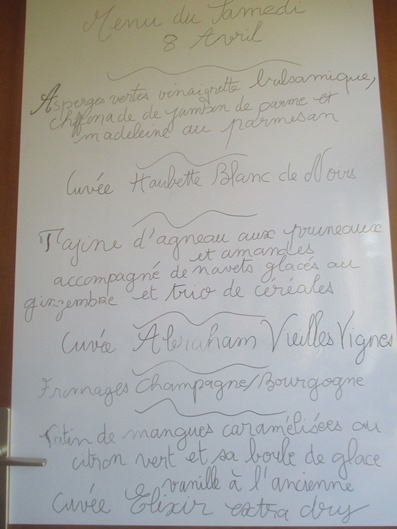 Menu du Samedi
8 Avril
Asperges vertes vinaigrette balsamique,
chiffonade de jambon de parme et
madeleine au parmesan
Cuvée Haubette Blanc de Noirs
Tajine d'agneau aux pruneaux
et amandes
accompagné de navets glacés au
gingembre et trio de céréales
Cuvée Abraham Vieilles Vignes
Fromages Champagne/Bourgogne
Tatin de mangues caramélisées au
citron vert et sa boule de glace
vanille à l'ancienne
Cuvée Elixir extra dry